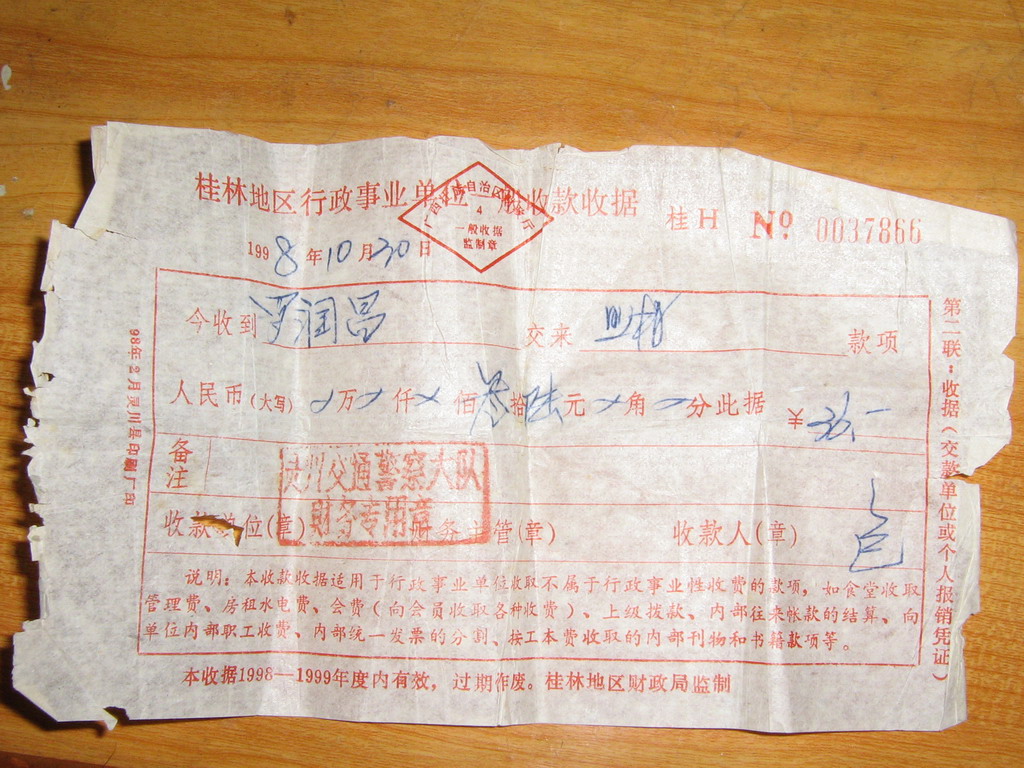 桂林地区行政事业单位一般收款收据
广西壮族自治区财政厅
4
一般收据
监制章
桂H No. 0037866
1998年10月30日
今收到 罗润昌 交来 款项
人民币(大写) 万 仟 佰叁拾陆元 角 分此据 ¥36.—
备注
灵川交通警察大队
财务专用章
收款单位(章) 财务主管(章) 收款人(章)
说明:本收款收据适用于行政事业单位收取不属于行政事业性收费的款项,如食堂收取
管理费、房租水电费、会费(向会员收取各种收费)、上级拨款、内部往来帐款的结算、向
单位内部职工收费、内部统一发票的分割、按工本费收取的内部刊物和书籍款项等。
本收据1998—1999年度内有效,过期作废。桂林地区财政局监制
第二联:收据(交款单位或个人报销凭证)
98年2月灵川县印刷厂印